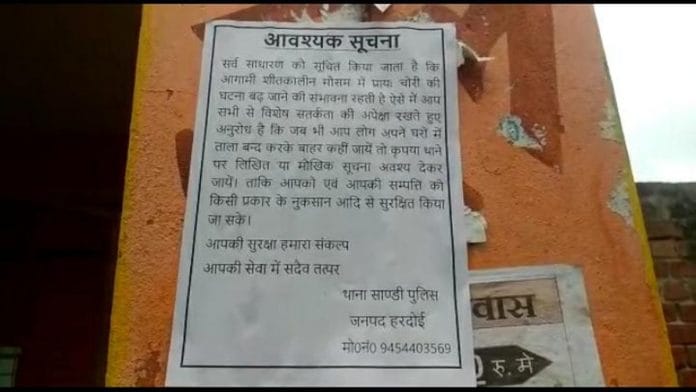 आवश्यक सूचना
सर्व साधारण को सूचित किया जाता है कि
आगामी शीतकालीन मौसम में प्रायः चोरी की
घटना बढ़ जाने की संभावना रहती है ऐसे में आप
सभी से विशेष सतर्कता की अपेक्षा रखते हुए
अनुरोध है कि जब भी आप लोग अपने घरों में
ताला बन्द करके बाहर कहीं जायें तो कृपया थाने
पर लिखित या मौखिक सूचना अवश्य देकर
जायें। ताकि आपको एवं आपकी सम्पत्ति को
किसी प्रकार के नुकसान आदि से सुरक्षित किया
जा सके।
आपकी सुरक्षा हमारा संकल्प
आपकी सेवा में सदैव तत्पर
थाना साण्डी पुलिस
जनपद हरदोई
मो0नं0 9454403569
वास
रु. मे